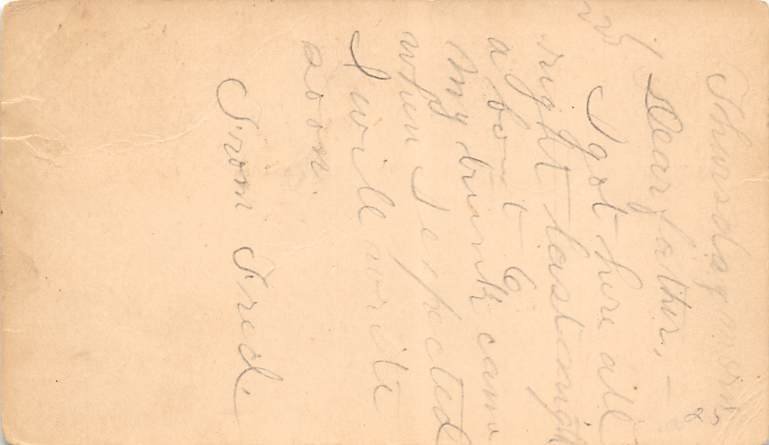 Thursday morn
Dear father, —
I got here all
right last night
about 6
My trunk came
when I expected
I will write
soon.
From Fred.